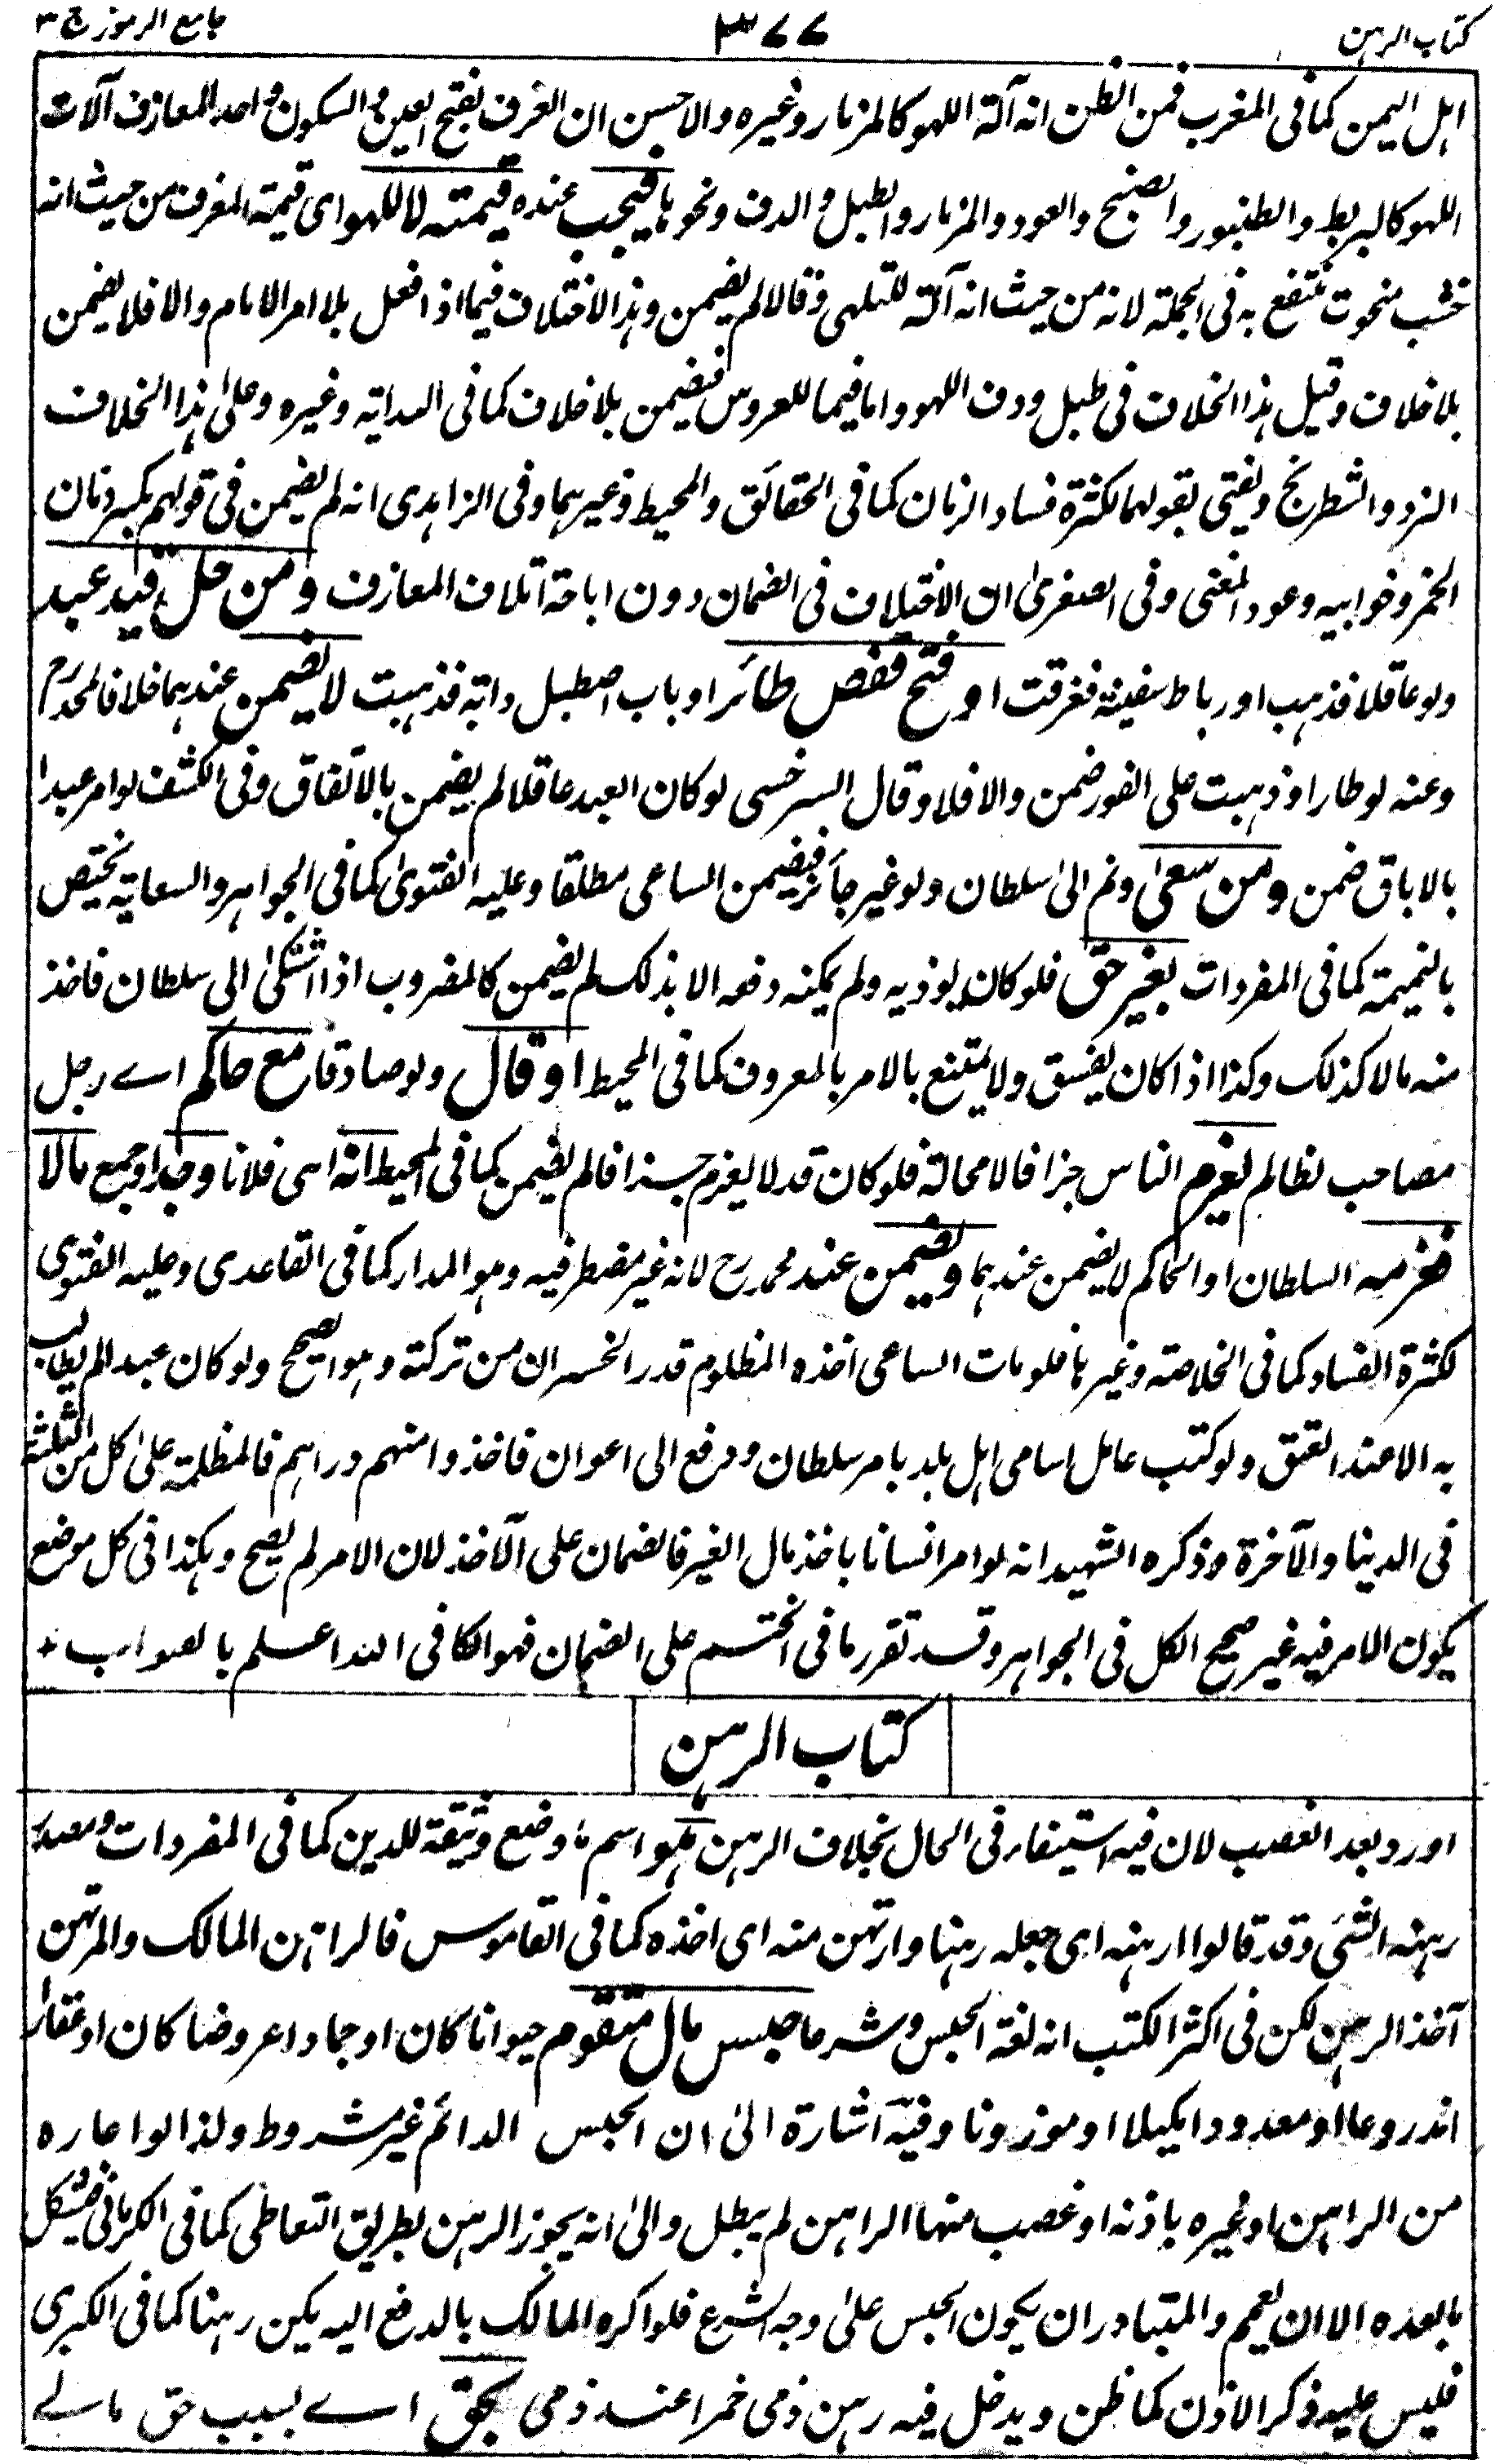 كتاب الرهن ٣٧٧ جامع الرموز ج ٣
اهل اليمن كما فى المغرب فمن الظن انه آلة اللهو كالمزمار وغيره والاحسن ان العزف بفتح العين والسكون واحد المعازف آلات
اللهو كالبربط والطنبور والصنج والعود والمزمار والطبل والدف ونحوها فيجب عنده قيمته لا للهو اى قيمة المعزف من حيث انه
خشب منحوت منتفع به فى الجملة لانه من حيث انه آلة للتلهى وقالا لم يضمن وهذا الاختلاف فيما اذا فعل بلا امر الامام والا فلا يضمن
بلا خلاف وقيل هذا الخلاف فى طبل ودف اللهو واما فيما للعروس فيضمن بلا خلاف كما فى الهداية وغيره وعلى هذا الخلاف
النرد والشطرنج ويفتى بقولهما لكثرة فساد الزمان كما فى الحقائق والمحيط وغيرهما وفى الزاهدى انه لم يضمن فى قولهم بكسر دنان
الخمر وخوابيه وعود المغنى وفى الصغرى ان الاختلاف فى الضمان دون اباحة اتلاف المعازف ومن حل قيد عبد
ولو عاقلا فذهب او رباط سفينة فغرقت او فتح قفص طائر او باب اصطبل دابة فذهبت لا يضمن عندهما خلافا لمحمد رح
وعنه لو طار او ذهبت على الفور ضمن والا فلا وقال السرخسى لو كان العبد عاقلا لم يضمن بالاتفاق وفى الكشف لو امر عبدا
بالاباق ضمن ومن سعى ونم الى سلطان ولو غير جائز فيضمن الساعى مطلقا وعليه الفتوى كما فى الجواهر والسعاية تختص
بالنميمة كما فى المفردات بغير حق فلو كان يوذيه ولم يمكنه دفعه الا بذلك لم يضمن كالمضروب اذا اشتكى الى سلطان فاخذ
منه مالا كذلك وكذا اذا كان يفسق ولا يمتنع بالامر بالمعروف كما فى المحيط او قال ولو صادقا مع حاكم اے رجل
مصاحب لظالم يغرم الناس جزافا لا محالة فلو كان قد لا يغرم جزافا لم يضمن كما فى المحيط انه اى فلانا وجد او جمع مالا
فغرمه السلطان او الحاكم لا يضمن عندهما ويضمن عند محمد رح لانه غير مضطر فيه وهو المدار كما فى القاعدى وعليه الفتوى
لكثرة الفساد كما فى الخلاصة وغيرها فلو مات الساعى اخذه المظلوم قدر الخسران من تركته وهو الصحيح ولو كان عبدا لم يطالب
به الا عند العتق ولو كتب عامل اسامى اهل بلد بامر سلطان ودفع الى اعوان فاخذوا منهم دراهم فالمظلمة على كل من الثلثة
فى الدنيا والآخرة وذكره الشهيد انه لو امر انسانا باخذ مال الغير فالضمان على الآخذ لان الامر لم يصح وهكذا فى كل موضع
يكون الامر فيه غير صحيح الكل فى الجواهر وقد تقرر ما فى الختم على الضمان فهو الكافى الله اعلم بالصواب +
كتاب الرهن
اورد بعد الغصب لان فيه استيفاء فى الحال بخلاف الرهن هو اسم ما وضع وثيقة للدين كما فى المفردات ومصدر
رهنه الشئ وقد قالوا ارهنه اى جعله رهنا وارتهن منه اى اخذه كما فى القاموس فالراهن المالك والمرتهن
آخذ الرهن لكن فى اكثر الكتب انه لغة الحبس وشرعا حبس مال متقوم حيوانا كان او جمادا عروضا كان او عقارا
مذروعا او معدودا مكيلا او موزونا وفيه اشارة الى ان الحبس الدائم غير مشروط ولذا لو اعاره
من الراهن او غيره باذنه او غصب منها الراهن لم يبطل والى انه يجوز الرهن بطريق التعاطى كما فى الكرمانى فيشكل
ما بعده الا ان يعمم والمتبادر ان يكون الحبس على وجه الشرع فلو اكره المالك بالدفع اليه يكن رهنا كما فى الكبرى
فليس عليه ذكر الاذن كما ظن ويدخل فيه رهن ذمى خمرا عند ذمى بحق اے بسبب حق مالے